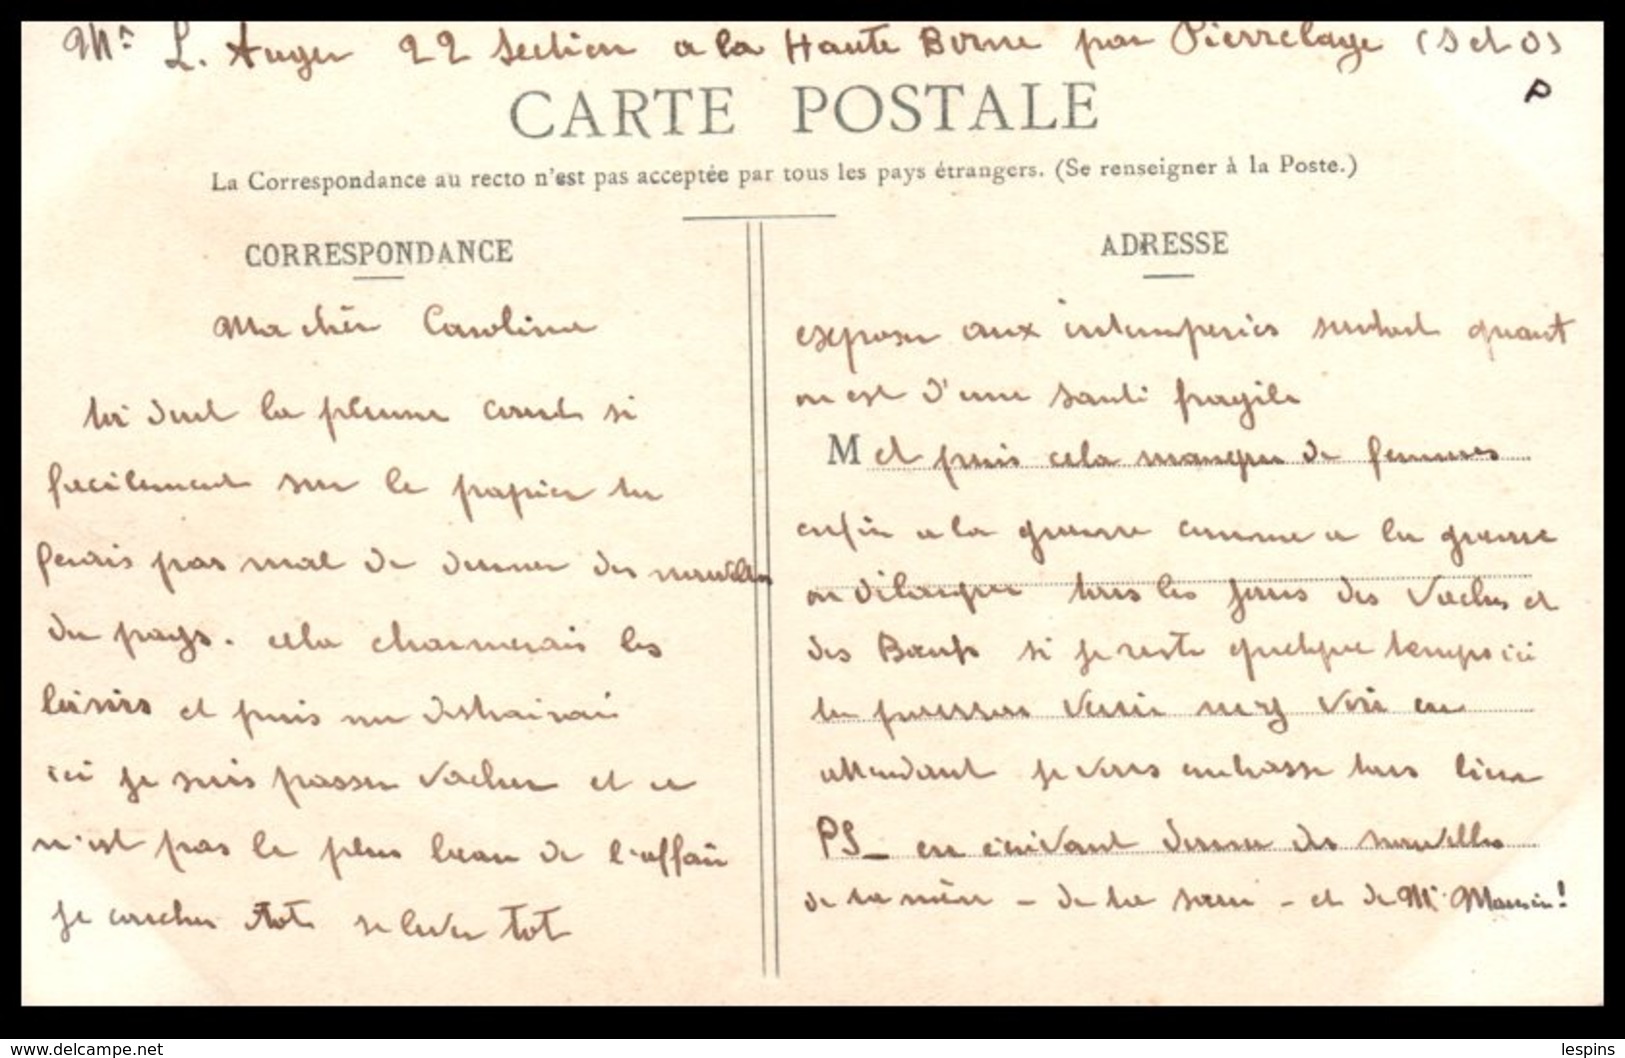 Mr L. Auger 22 section a la Haute Borne par Pierrelaye (S et O)
P
CARTE POSTALE
La Correspondance au recto n'est pas acceptée par tous les pays étrangers. (Se renseigner à la Poste.)
CORRESPONDANCE
Ma chèr Caroline
toi dont la plume court si
facilement sur le papier tu
ferais pas mal de donner des nouvelles
du pays. cela charmerais les
loisirs et puis me distrairai
ici je suis passer vacher et ce
n'est pas le plus beau de l'affair
se coucher tot se lever tot
ADRESSE
exposer aux intemperies surtout quant
on est d'une santé fragile
M et puis cela manque de femmes
enfin a la guerre comme a la guerre
on tous les jours des Vaches et
des Bœufs si je reste quelque temps ici
tu pourras venir m'y voir en
attendant je vous embrasse tous
PS_ en écrivant donner des nouvelles
de ta mère - de ta sœur - et de Mr
www.delcampe.net
lespins